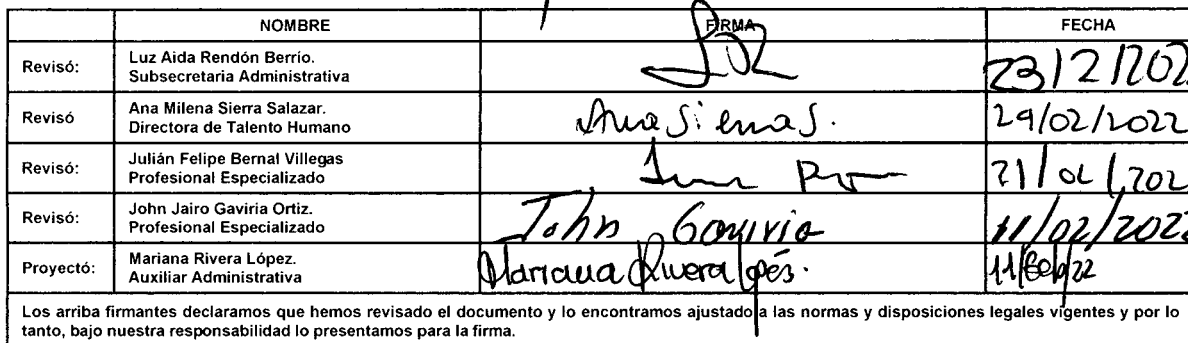 NOMBRE FIRMA FECHA
Revisó: Luz Aida Rendón Berrío.
Subsecretaria Administrativa
Revisó Ana Milena Sierra Salazar.
Directora de Talento Humano
Ana Sierra S. 29/02/2022
Revisó: Julián Felipe Bernal Villegas
Profesional Especializado
Revisó: John Jairo Gaviria Ortiz.
Profesional Especializado
John Gaviria 11/02/2022
Proyectó: Mariana Rivera López.
Auxiliar Administrativa
Mariana Rivera López. 11/Feb/22
Los arriba firmantes declaramos que hemos revisado el documento y lo encontramos ajustado a las normas y disposiciones legales vigentes y por lo
tanto, bajo nuestra responsabilidad lo presentamos para la firma.